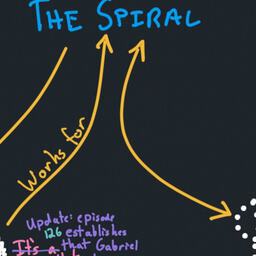 THE SPIRAL
Works for
Update: episode
126 establishes
It's a that Gabriel